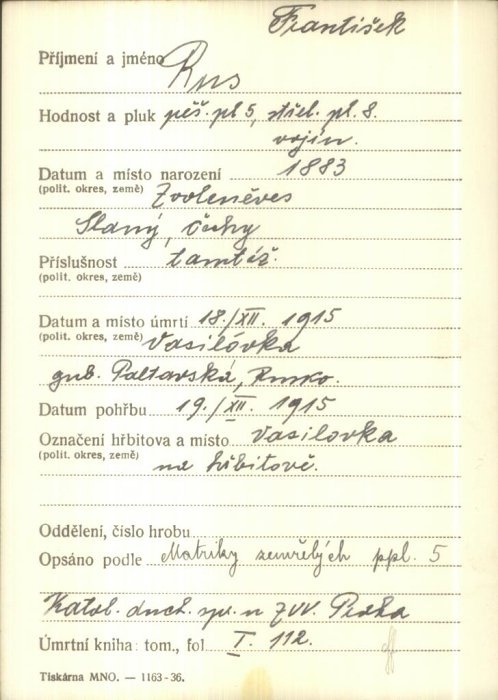 František
Příjmení a jméno Rus
Hodnost a pluk pěš. pl 5, střel. pl. 8.
vojín.
Datum a místo narození 1883
(polit. okres, země) Zvoleněves
Slaný, Čechy
Příslušnost tamtéž.
(polit. okres, země)
Datum a místo úmrtí 18./XII. 1915
(polit. okres, země) Vasilóvka
gub. Paltavská, Rusko.
Datum pohřbu 19./XII. 1915
Označení hřbitova a místo Vasilovka
(polit. okres, země)
na hřbitově.
Oddělení, číslo hrobu
Opsáno podle Matriky zemřelých ppl. 5
Katol. duch. spr. u ZVV. Praha
Úmrtní kniha: tom., fol. I. 112.
Tiskárna MNO. — 1163-36.